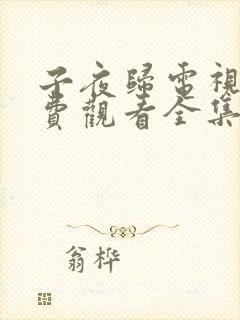 子夜歸電視
費觀看全集
翁桦